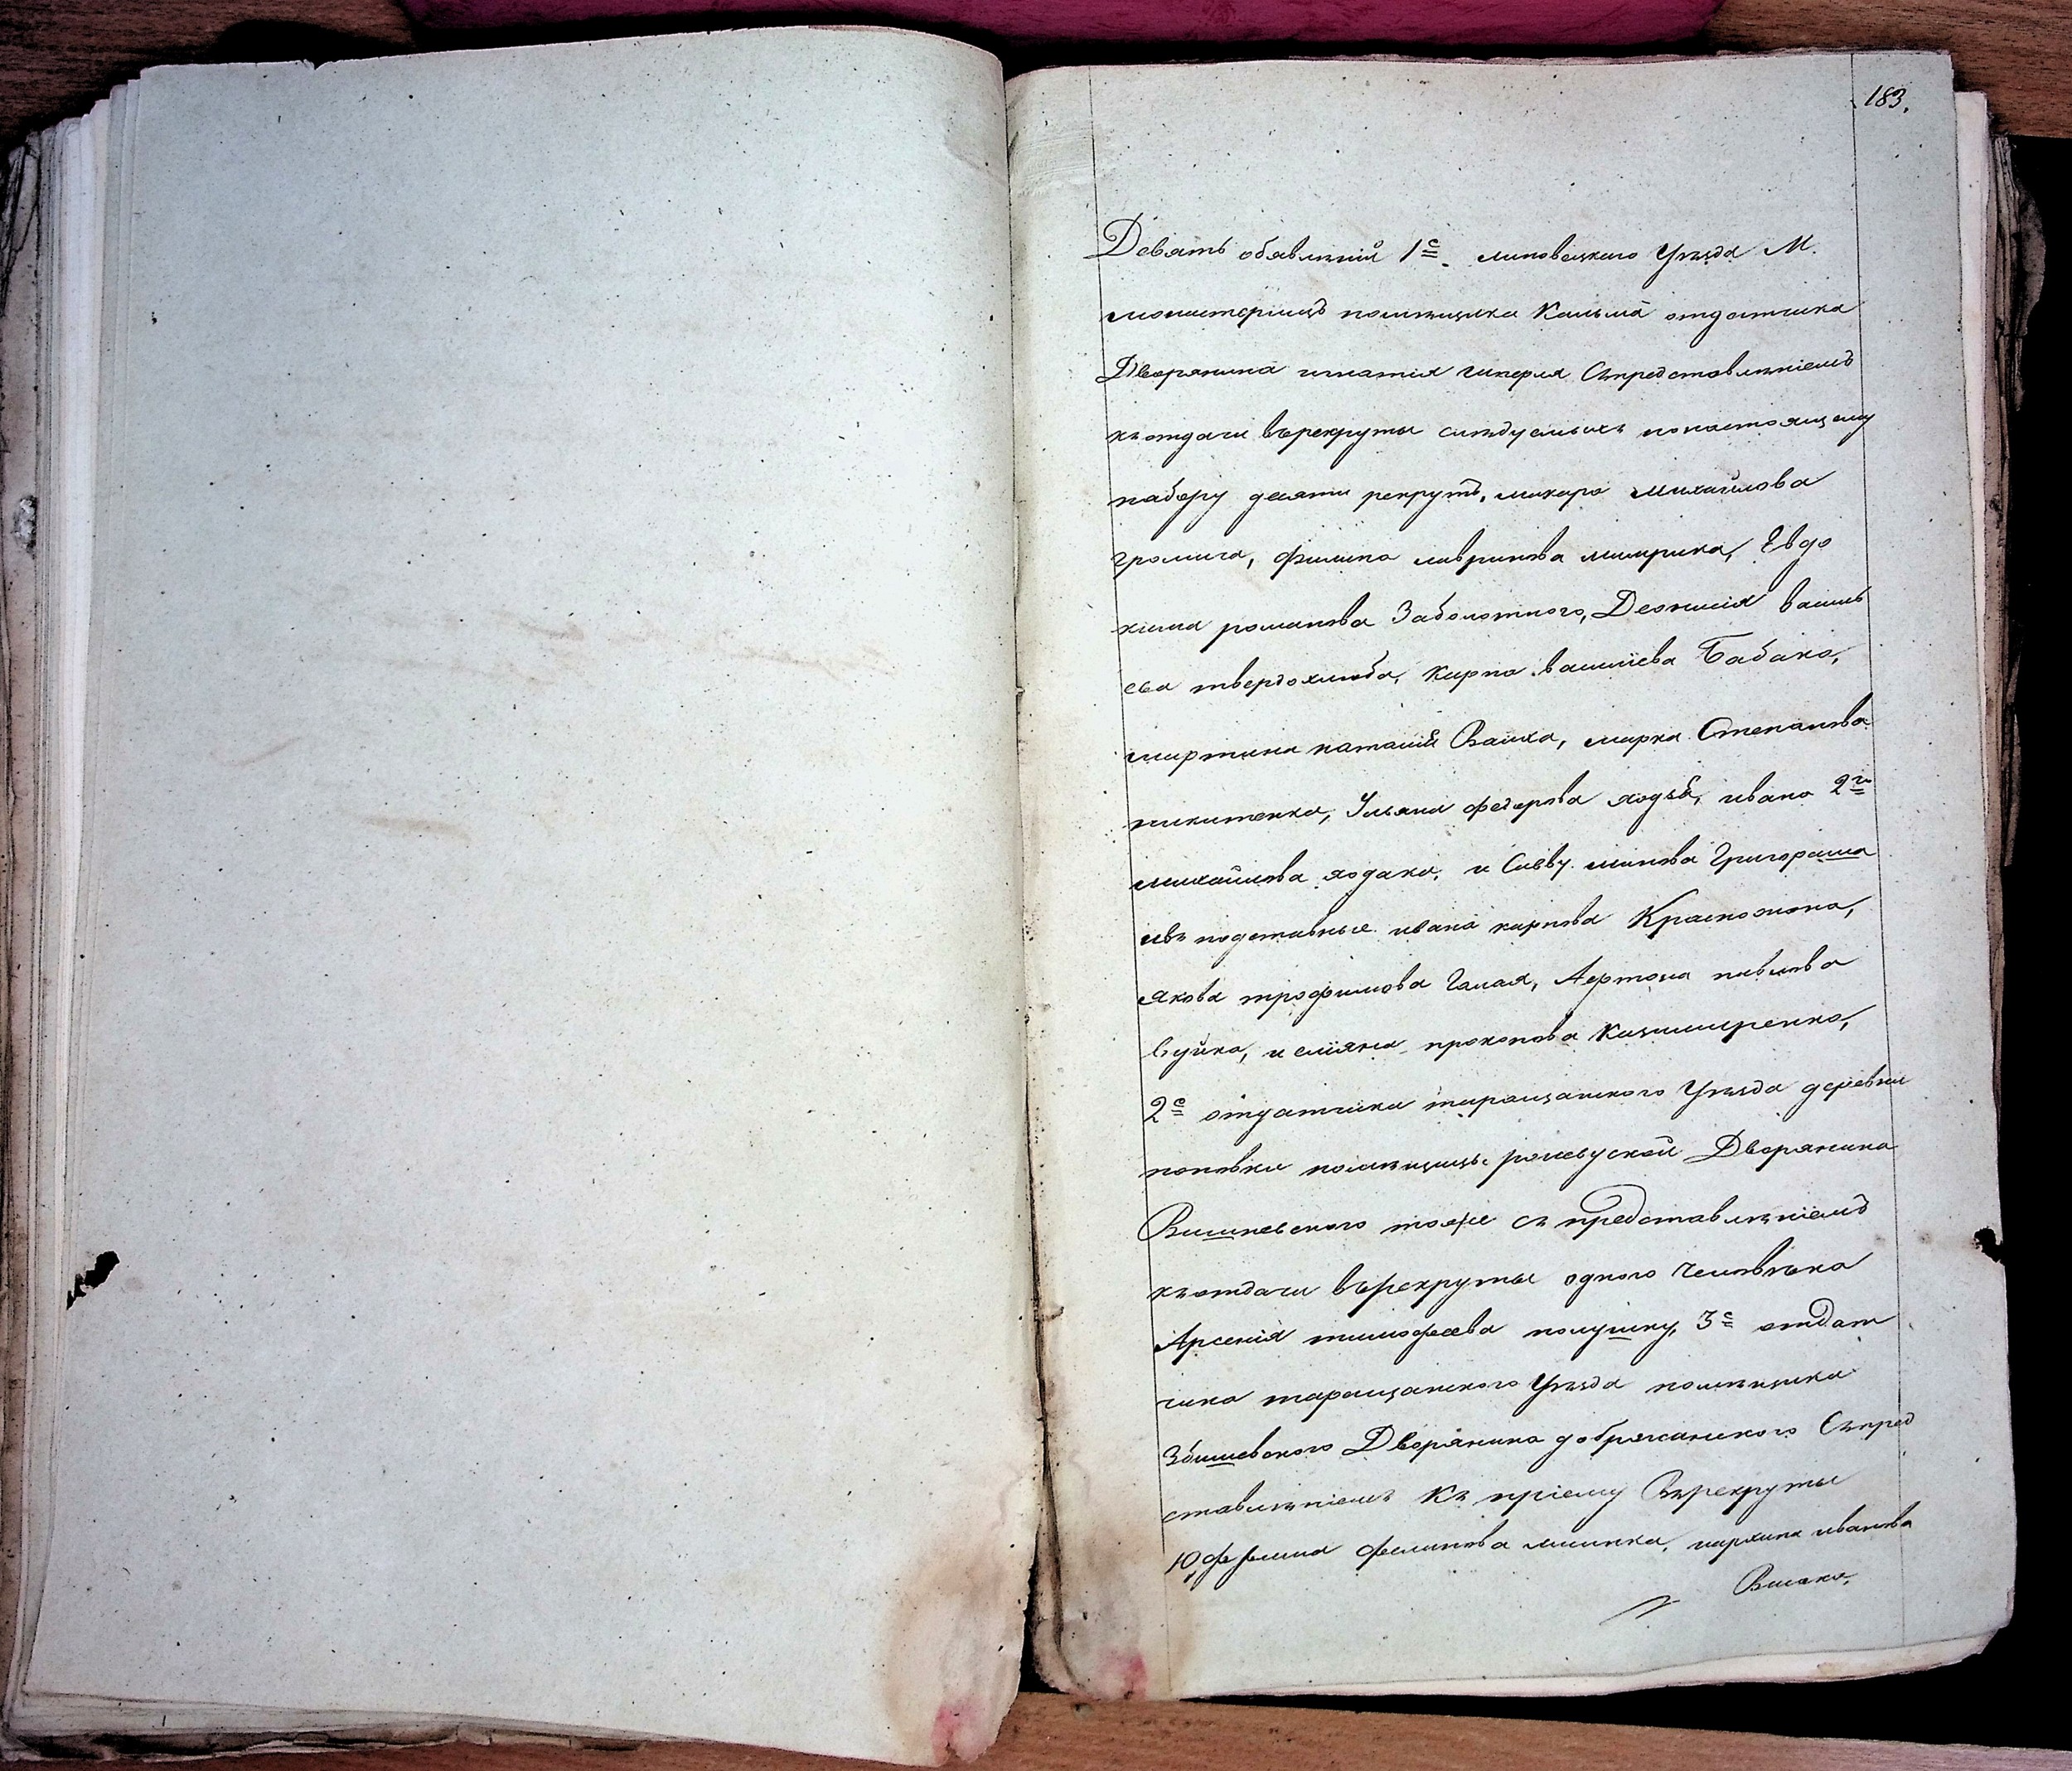 183.
Девять обявлѣнiй 1е липовецкаго Уѣзда М.
монастерищъ помѣщика Кальма отдатчика
Дворянина игнатiя Съпредставлѣнiемъ
къотдачи върекруты слѣдуемыхъ понастоящему
набору десяти рекрутъ, макара Михайлова
громика, Филипа лавринова Евдо
кима романова Заболотного, Деонисiя василь
ева твердохлѣба, Карпа василiева Бабака,
мартина марка Степанова
никитенка, Ульяна федорова ивана 2го
михайлова ходака, и Савву минова Григораша
ивъ подставные ивана карпова Красножона,
якова трофимова Галая, павлова
вуйка, и емiяна прокопова Казимиренка,
2е отдатчика таращанского Уѣзда деревни
поповки помѣщицы Дворянина
Вишневского тоже съ представлѣнiемъ
къотдачи върекруты одного Человѣка
Арсенiя тимофеева полушку, 3е отдат
чика таращанского Уѣзда помѣщика
Збышевского Дворянина добржанского Съпред
ставлѣнiемъ Къ прiему Върекруты
Юефима филипова иванова